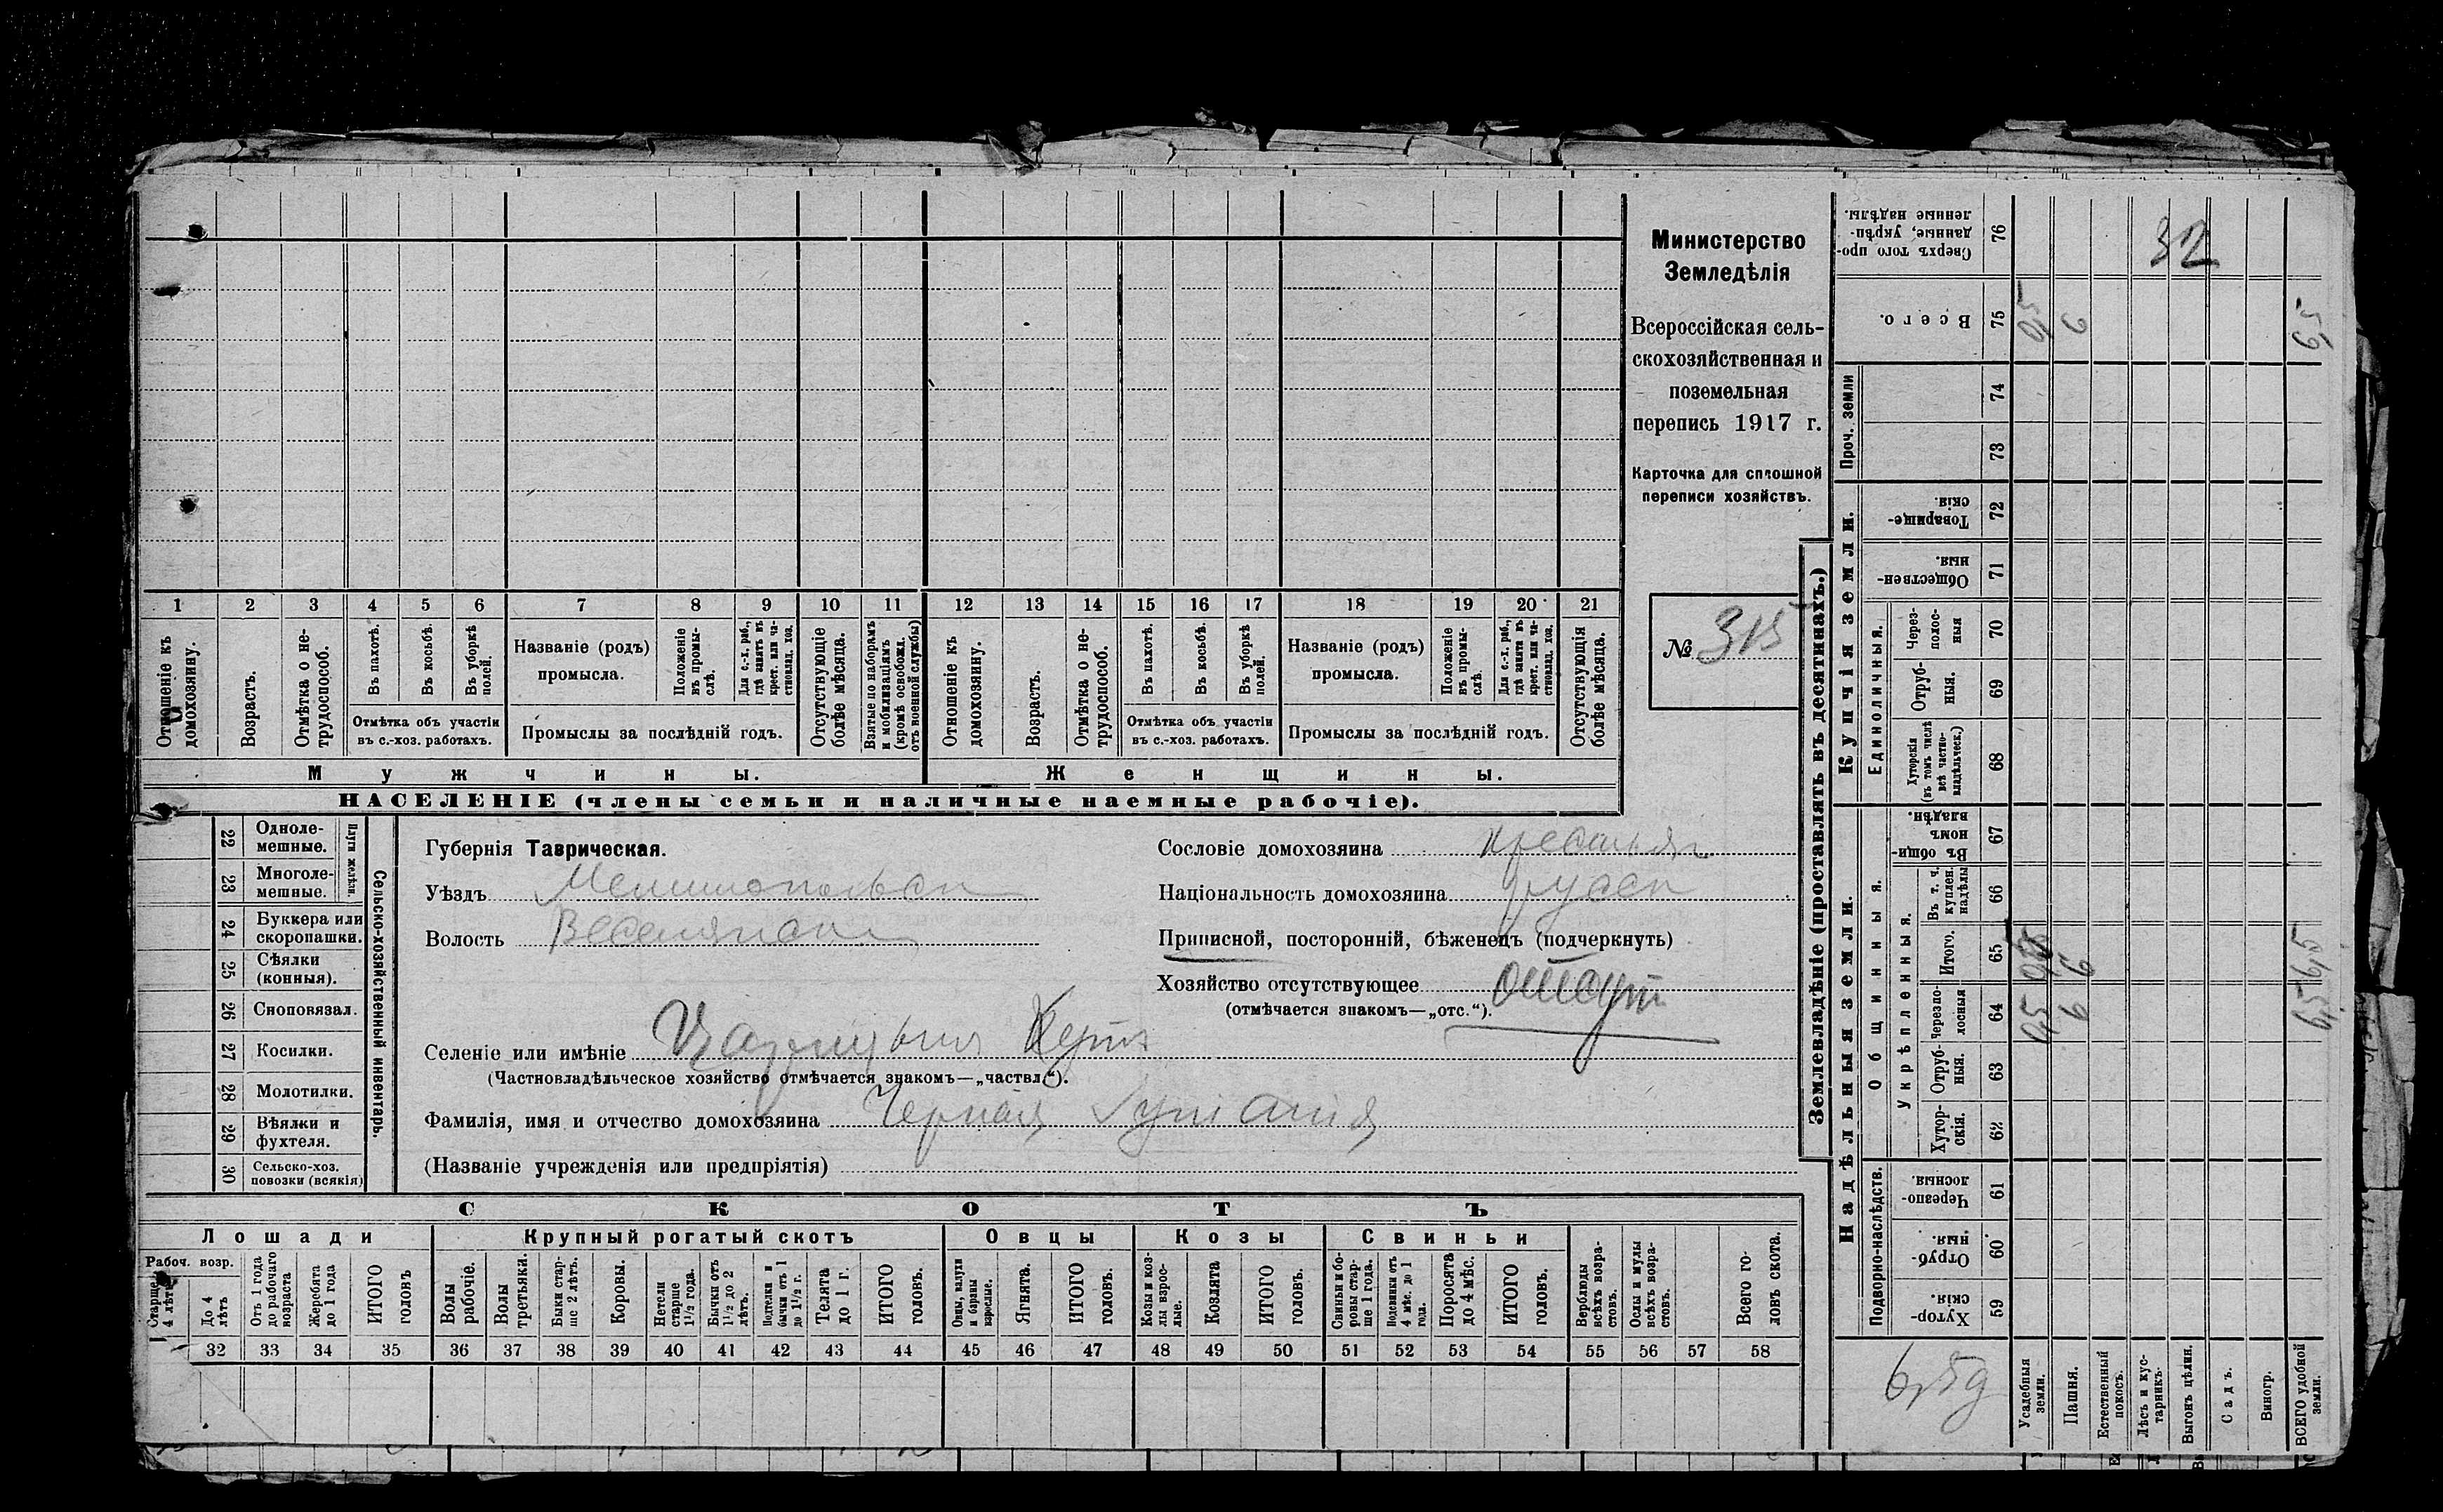 Министерство
Земледѣлія
Всероссійская сель-
скохозяйственная и
поземельная
перепись 1917 г.
Карточка для сплошной
переписи хозяйствъ.
№ 315
1 2 3 4 5 6 7 8 9 10 11 12 13 14 15 16 17 18 19 20 21
Отношеніе къ домохозяину.
Возрастъ.
Отмѣтка о не-трудоспособ.
Въ пахотѣ.
Въ косьбѣ.
Въ уборкѣ полей.
Отмѣтка объ участіи
въ с.-хоз. работахъ.
Названіе (родъ)
промысла.
Положеніе въ промы-слѣ.
Для с.-х. раб., гдѣ занятъ въ крест. или ча-стновлад. хоз.
Промыслы за послѣдній годъ.
Отсутствующіе болѣе мѣсяца.
Взятые по наборамъ и мобилизаціямъ (кромѣ освобожд. отъ военной службы)
Отношеніе къ домохозяину.
Возрастъ.
Отмѣтка о не-трудоспособ.
Въ пахотѣ.
Въ косьбѣ.
Въ уборкѣ полей.
Отмѣтка объ участіи
въ с.-хоз. работахъ.
Названіе (родъ)
промысла.
Положеніе въ промы-слѣ.
Для с.-х. раб., гдѣ занята въ крест. или ча-стновлад. хоз.
Промыслы за послѣдній годъ.
Отсутствующія болѣе мѣсяца.
Мужчины.
Женщины.
НАСЕЛЕНІЕ (члены семьи и наличные наемные рабочіе).
22 Одноле-мешные.
23 Многоле-мешные.
Плуги желѣзн.
24 Буккера или скоропашки.
25 Сѣялки (конныя).
26 Сноповязал.
27 Косилки.
28 Молотилки.
29 Вѣялки и фухтеля.
30 Сельско-хоз. повозки (всякія)
Сельско-хозяйственный инвентарь.
Губернія Таврическая.
Уѣздъ Мелитопольск
Волость Веселянск
Селеніе или имѣніе
(Частновладѣльческое хозяйство отмѣчается знакомъ—„частвл.“).
Фамилія, имя и отчество домохозяина Черная
(Названіе учрежденія или предпріятія)
Сословіе домохозяина крестьян
Національность домохозяина русск
Приписной, посторонній, бѣженецъ (подчеркнуть)
Хозяйство отсутствующее отсут
(отмѣчается знакомъ—„отс.“).
СКОТЪ
Лошади
Крупный рогатый скотъ
Овцы
Козы
Свиньи
Рабоч. возр.
Старше 4 лѣтъ
До 4 лѣтъ
Отъ 1 года до рабочаго возраста
Жеребята до 1 года
ИТОГО головъ
Волы рабочіе.
Волы третьяки.
Быки стар-ше 2 лѣтъ.
Коровы.
Нетели старше 1½ года.
Бычки отъ 1½ до 2 лѣтъ.
Подтелки и бычки отъ 1 до 1½ г.
Телята до 1 г.
ИТОГО головъ.
Овцы, валухи и бараны взрослые.
Ягнята.
ИТОГО головъ.
Козы и коз-лы взрос-лые.
Козлята
ИТОГО головъ.
Свиньи и бо-ровы стар-ше 1 года.
Подсвинки отъ 4 мѣс. до 1 года.
Поросята до 4 мѣс.
ИТОГО головъ.
Верблюды всѣхъ возра-стовъ.
Ослы и мулы всѣхъ возра-стовъ.
Всего го-ловъ скота.
32 33 34 35 36 37 38 39 40 41 42 43 44 45 46 47 48 49 50 51 52 53 54 55 56 57 58
Землевладѣніе (проставлять въ десятинахъ.)
Надѣльныя земли.
Купчія земли.
Проч. земли
Подворно-наслѣдств.
Общинныя.
Укрѣпленныя.
Единоличныя.
Сверхъ того про-данные, укрѣп-ленные надѣлы. 76 32
Всего. 75 0,5 6 6,5
74
73
Товарище-скія. 72
Обществен-ныя. 71
Через-полос-ныя 70
Отруб-ныя. 69
Хуторскія (въ томъ числѣ всѣ частно-владѣльческ.) 68
Въ общин-номъ владѣн. 67
Въ т. ч. куплен. надѣлы 66
Итого. 65 6 6,5
Черезпо-лосныя 64 0,5 6 6,5
Отруб-ныя. 63
Хутор-скія. 62
Черезпо-лосныя. 61
Отруб-ныя. 60
Хутор-скія. 59
6,5 д
Усадебныя земли.
Пашня.
Естественный покосъ.
Лѣсъ и кус-тарникъ.
Выгонъ цѣлин.
Садъ.
Виногр.
ВСЕГО удобной земли.